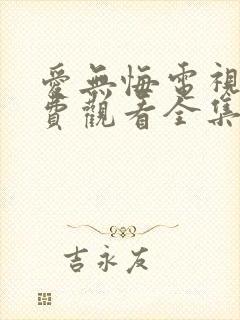 愛無悔電視
費觀看全集
吉永友